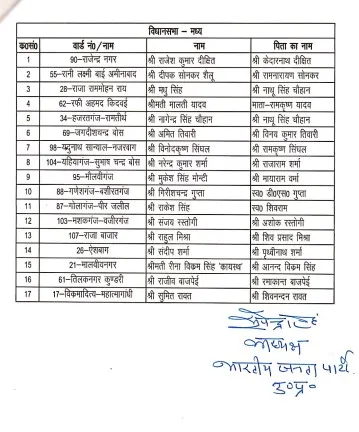 विधानसभा – मध्य
क०सं० वार्ड नं० / नाम नाम पिता का नाम
1 90-राजेन्द्र नगर श्री राजेश कुमार दीक्षित श्री केदारनाथ दीक्षित
2 55-रानी लक्ष्मी बाई अमीनाबाद श्री दीपक सोनकर शैलू श्री रामनारायण सोनकर
3 28-राजा राममोहन राय श्री मधु सिंह श्री नाथू सिंह चौहान
4 62-रफी अहमद किदवई श्रीमती मालती यादव माता-रामकृष्ण यादव
5 34-हजरतगंज-रामतीर्थ श्री नागेन्द्र सिंह चौहान श्री नाथू सिंह चौहान
6 69-जगदीशचन्द्र बोस श्री अमित तिवारी श्री विनय कुमार तिवारी
7 98-यदुनाथ सान्याल-नजरबाग श्री विनोदकृष्ण सिंघल श्री रामकृष्ण सिंघल
8 104-यहियागंज-सुभाष चन्द्र बोस श्री नरेन्द्र कुमार शर्मा श्री राजाराम शर्मा
9 95-मौलवीगंज श्री मुकेश सिंह मोन्टी श्री मायाराम वर्मा
10 88-गणेशगंज-बशीरतगंज श्री गिरीशचन्द्र गुप्ता स्व० डी०एस० गुप्ता
11 87-गोलागंज-पीर जलील श्री राकेश सिंह स्व० शिवराम
12 103-मशकगंज-वजीरगंज श्री संजय रस्तोगी श्री अशोक रस्तोगी
13 107-राजा बाजार श्री राहुल मिश्रा श्री शिव प्रसाद मिश्रा
14 26-ऐशबाग श्री संदीप शर्मा श्री पृथ्वीनाथ शर्मा
15 21-मालवीयनगर श्रीमती रीना विक्रम सिंह 'कायस्थ' श्री आनन्द विक्रम सिंह
16 61-तिलकनगर कुण्डरी श्री राजीव बाजपेई श्री रमाकान्त बाजपेई
17 17-विक्रमादित्य-महात्मागांधी श्री सुमित रावत श्री शिवनन्दन रावत
अध्यक्ष
भारतीय जनता पार्टी
उ०प्र०